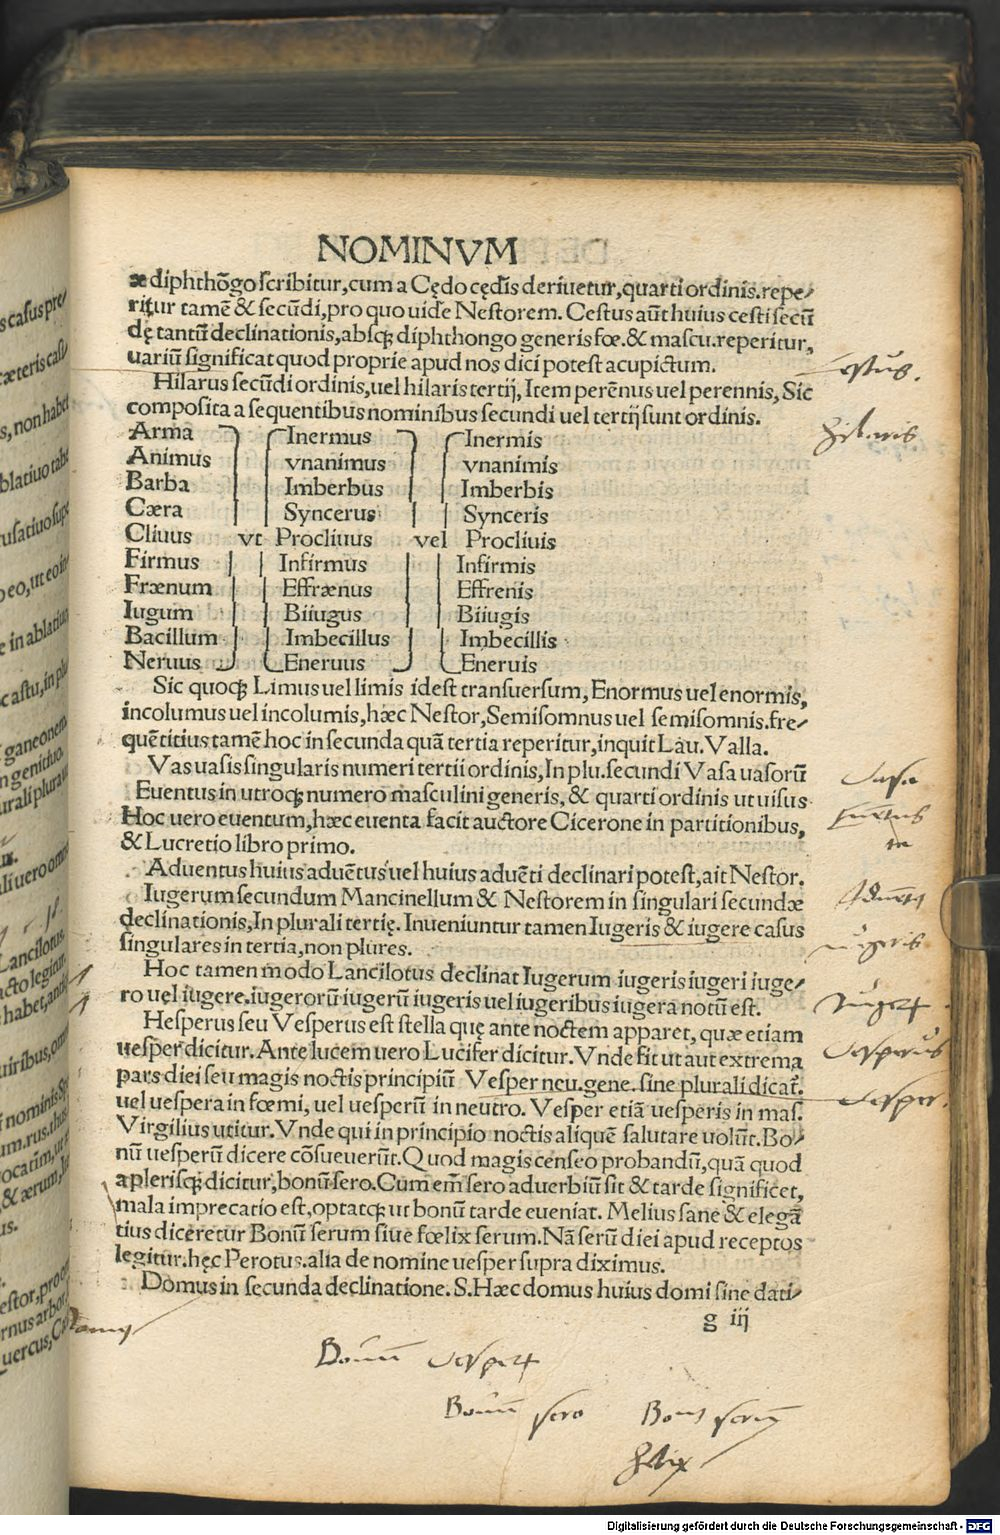 NOMINVM
æ diphthõgo scribitur, cum a Cędo cędis deriuetur, quarti ordinis. repe/
ritur tamẽ & secũdi, pro quo uide Nestorem. Cestus aũt huius cesti secũ
dę tantũ declinationis, absqꝫ diphthongo generis fœ. & mascu. reperitur,
uariũ significat quod proprie apud nos dici potest acupictum.
Hilarus secũdi ordinis, uel hilaris tertij, Item perẽnus uel perennis, Sic
composita a sequentibus nominibus secundi uel tertij sunt ordinis.
Arma Inermus Inermis
Animus vnanimus vnanimis
Barba Imberbus Imberbis
Cæra Syncerus Synceris
Cliuus vt Procliuus vel Procliuis
Firmus Infirmus Infirmis
Frænum Effrænus Effrenis
Iugum Biiugus Biiugis
Bacillum Imbecillus Imbecillis
Neruus Eneruus Eneruis
Sic quoqꝫ Limus uel limis idest transuersum, Enormus uel enormis,
incolumus uel incolumis, hæc Nestor, Semisomnus uel semisomnis. fre/
quẽtitius tamẽ hoc in secunda quã tertia reperitur, inquit Lau. Valla.
Vas uasis singularis numeri tertii ordinis, In plu. secundi Vasa uasorũ
Euentus in utroqꝫ numero masculini generis, & quarti ordinis ut uisus
Hoc uero euentum, hæc euenta facit auctore Cicerone in partitionibus,
& Lucretio libro primo.
Aduentus huius aduẽtus uel huius aduẽti declinari potest, ait Nestor.
Iugerum secundum Mancinellum & Nestorem in singulari secundæ
declinationis, In plurali tertię. Inueniuntur tamen Iugeris & iugere casus
singulares in tertia, non plures.
Hoc tamen modo Lancilotus declinat Iugerum iugeris iugeri iuge/
ro uel iugere. iugerorũ iugerũ iugeris uel iugeribus iugera notũ est.
Hesperus seu Vesperus est stella quę ante noctem apparet, quæ etiam
uesper dicitur. Ante lucem uero Lucifer dicitur. Vnde fit ut aut extrema
pars diei seu magis noctis principiũ Vesper neu. gene. sine plurali dicat̃.
uel uespera in fœmi, uel uesperũ in neutro. Vesper etiã uesperis in mas.
Virgilius utitur. Vnde qui in principio noctis aliquẽ salutare uolũt. Bo/
nũ uesperũ dicere cõsueuerũt. Quod magis censeo probandũ, quã quod
a plerisqꝫ dicitur, bonũ sero. Cum em̃ sero aduerbiũ sit & tarde significet,
mala imprecatio est, optatqꝫ ut bonũ tarde eueniat. Melius sane & elegã
tius diceretur Bonũ serum siue fœlix serum. Nã serũ diei apud receptos
legitur. hęc Perotus. alia de nomine uesper supra diximus.
Domus in secunda declinatione. S. Hæc domus huius domi sine dati/
g iij
Hilaris
Vasa
Iugeris
Vesperus
Vesper.
Domus
Bonum
Bonum sero
Digitalisierung gefördert durch die Deutsche Forschungsgemeinschaft - DFG